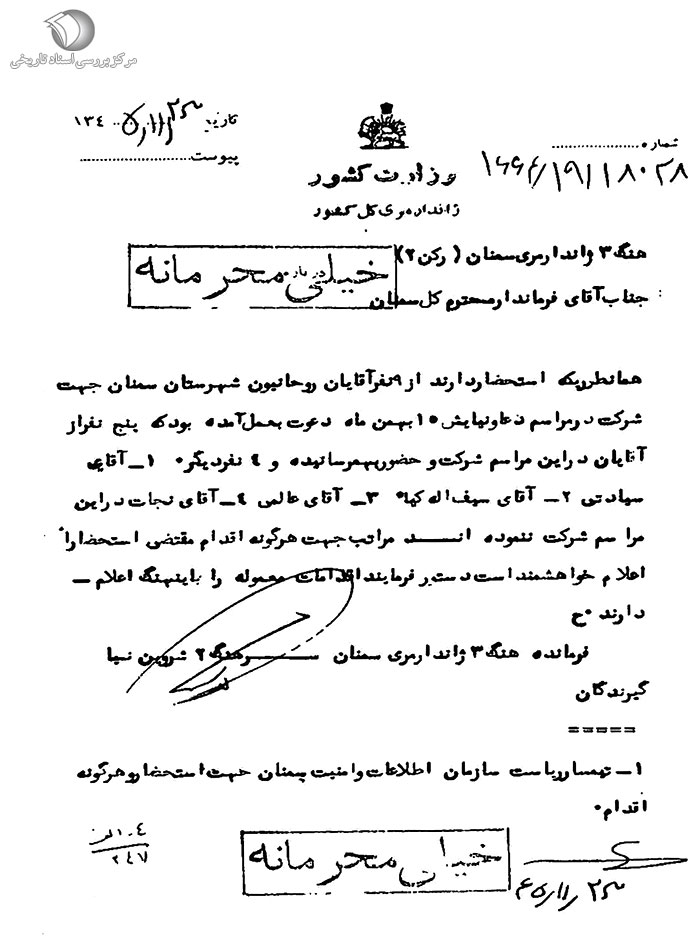 مرکز بررسی اسناد تاریخی
تاریخ ۱۳۴۰
پیوست
شماره
۱۹/۱۸۰۲۸
وزارت کشور
ژاندارمری کل کشور
هنگ ۳ ژاندارمری سمنان ( رکن ۲)
خیلی محرمانه
جناب آقای فرماندار محترم کل سمنان
همانطوریکه استحضار دارند از ۹نفر آقایان روحانیون شهرستان سمنان جهت
شرکت در مراسم دعا و نیایش ۱۵ بهمن ماه دعوت بعمل آمده بود که پنج نفر از
آقایان در این مراسم شرکت و حضور بهم رسانیده و ٤ نفر دیگر ۰ ۱ـ آقای
سیادتی ۲ـ آقای سیف اله کیا ۰ ۳ـ آقای عالمی ٤ـ آقای نجات در این
مراسم شرکت ننموده انـــد مراتب جهت هرگونه اقدام مقتضی استحضاراً
اعلام خواهشمند است دستور فرمایند اقدامات معموله را باینهنگ اعلام ـ
دارند ۰ح
فرمانده هنگ ۳ ژاندارمری سمنان ســـرهنگ ۲ شروین نیا
گیرندگان
=====
۱ـ تیمسار ریاست سازمان اطلاعات و امنیت سمنان جهت استحضار و هرگونه
اقدام ۰
خیلی محرمانه
۲٤۷